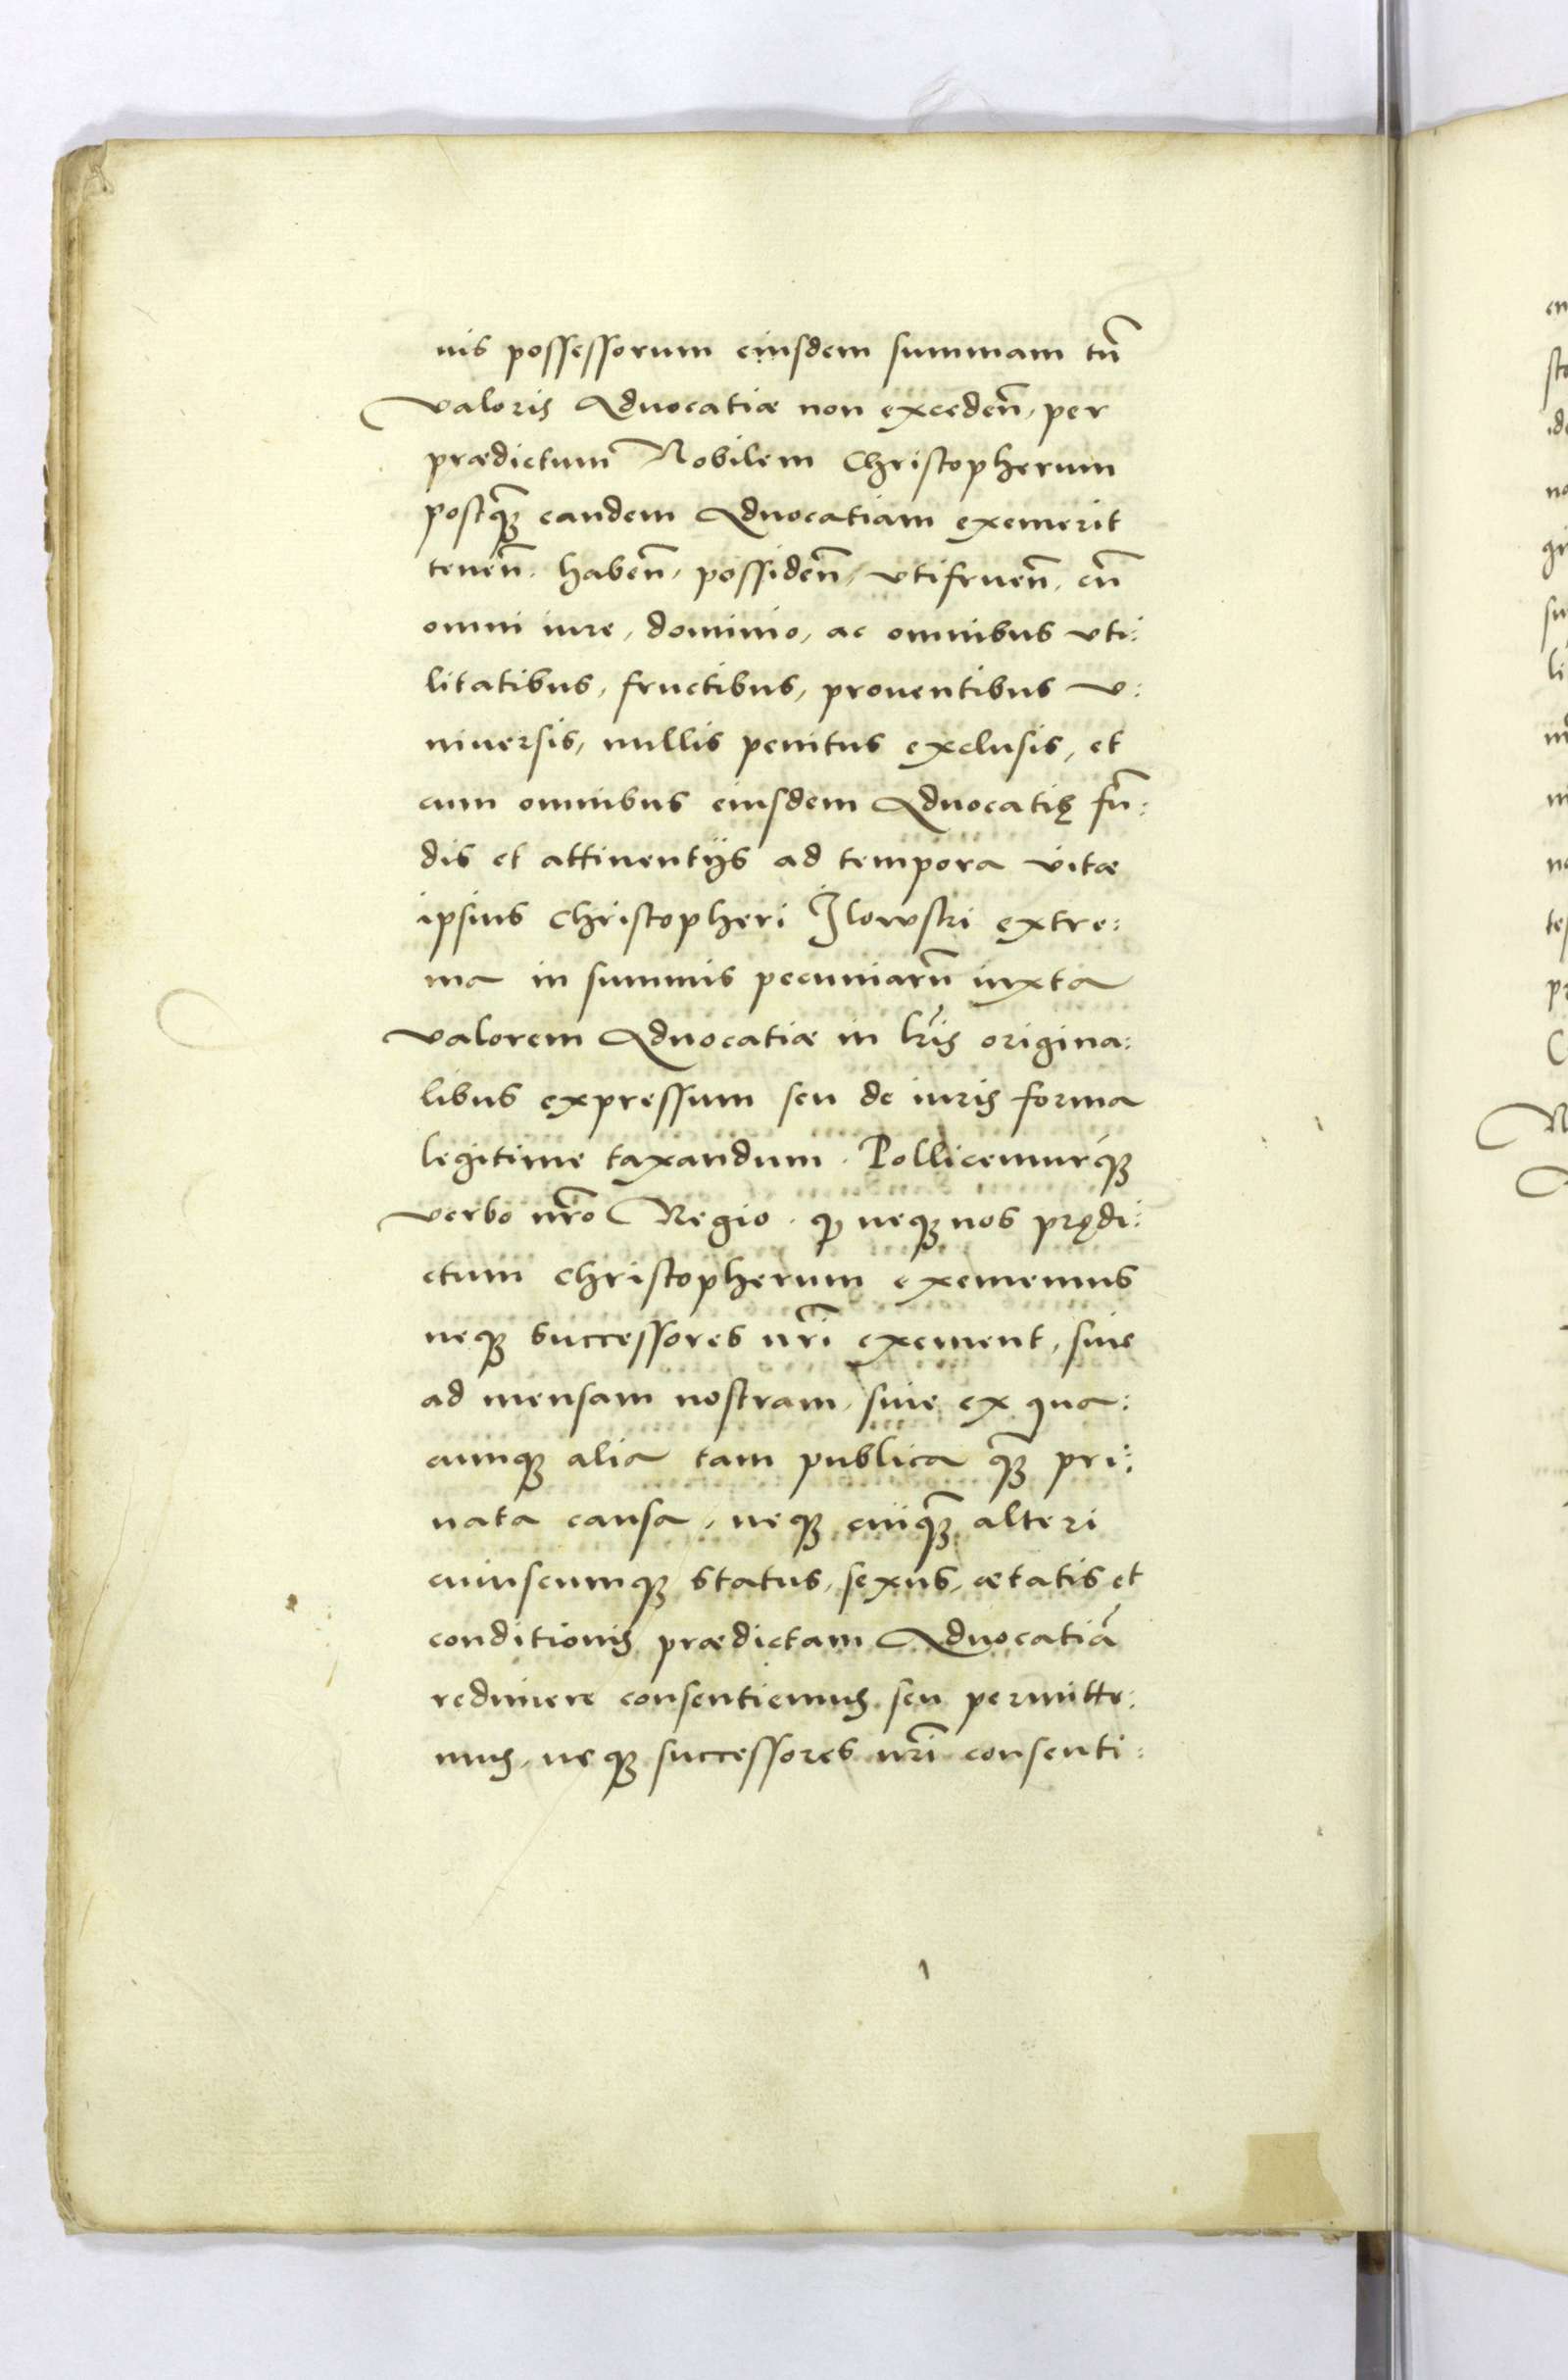 nis possessorum eiusdem summam tn̄
valoris Aduocatiæ non exceden̄, per
prædictum Nobilem Christopherum
postq̄ꝫ eandem Aduocatiam exemerit
tenen̄. haben̄, possiden̄, vtifruen̄, cū
omni iure, dominio, ac omnibus vti:
litatibus, fructibus, prouentibus v:
niuersis, nullis penitus exclusis, et
cum omnibus eiusdem Aduocatię fū:
dis et attinentijs ad tempora vitæ
ipsius Christopheri Jlowski extre:
ma in summis pecuniarū iuxta
valorem Aduocatiæ in lr̄is origina:
libus expressum seu de iuris forma
legitime taxandum. Pollicemurq́ꝫ
verbo nr̄o Regio. ꝙ neqꝫ nos prędi:
ctum Christopherum exememus
neqꝫ successores nr̄i exement, siue
ad mensam nostram, siue ex qua:
cunqꝫ alia tam publica q̄ꝫ pri:
uata causa, neqꝫ cuiq̄ꝫ alteri
cuiuscumqꝫ status, sexus, ætatis et
conditionis prædictam Aduocatiā
redimere consentiemus seu permitte:
mus, neqꝫ successores nr̄i consenti: